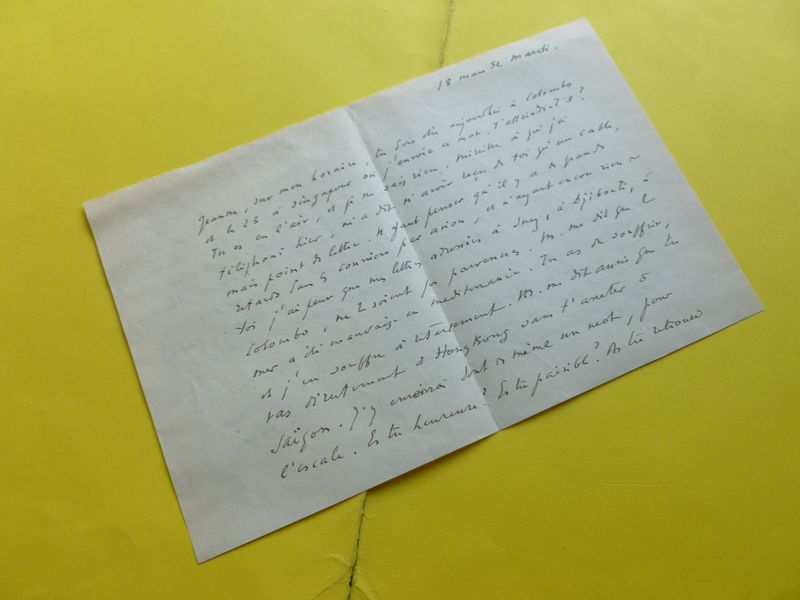 18 mars 52 mardi.
Jeanne, sur mon horaire, tu dois être aujourd'hui à Colombo
et le 23 à Singapour où j'envoie ce mot. T'atteindra-t-il ?
Tu es en l'air, et je ne sais rien. Mireille à qui j'ai
téléphoné hier, m'a dit n'avoir reçu de toi qu'un cable,
mais point de lettre. Il faut penser qu'il y a de grands
retards dans les courriers par avion, et n'ayant encore rien de
toi j'ai peur que mes lettres adressées à Suez, à Djibouti, à
Colombo, ne te soient pas parvenues. M. me dit que la
mer a été mauvaise en méditerranée. Tu as dû souffrir,
et j'en souffre à retardement. M. me dit aussi que tu
vas directement à HongKong sans t'arrêter à
Saïgon. J'y enverrai tout de même un mot, pour
l'escale. Es tu heureuse ? Es tu paisible ? As tu retrouvé